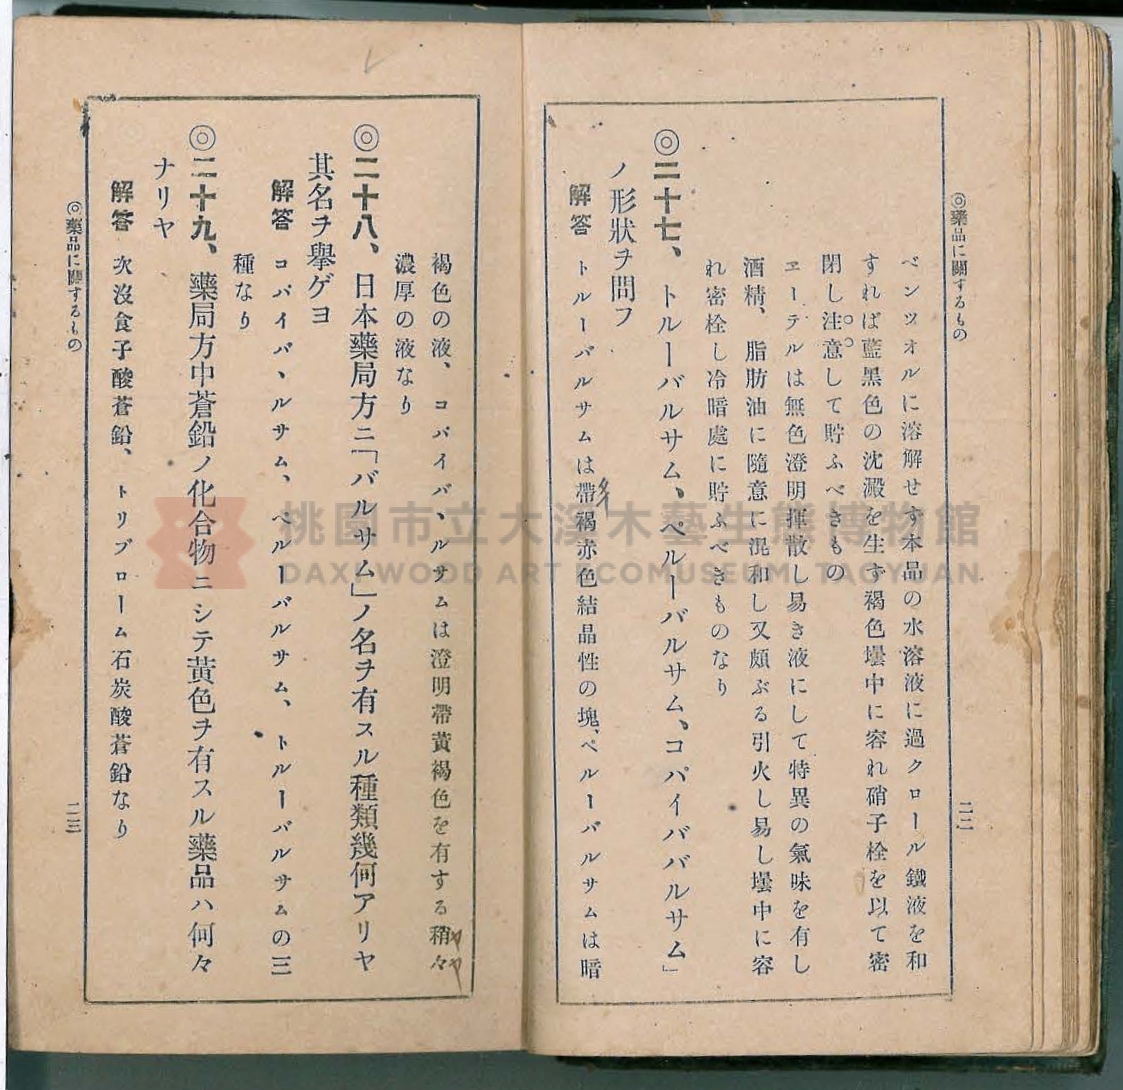 ◎藥品に關するもの
ベンツォルに溶解せず本品の水溶液に過クロール鐵液を和
すれば藍黑色の沈澱を生ず褐色壜中に容れ硝子栓を以て密
閉し注意して貯ふべきもの
エーテルは無色澄明揮散し易き液にして特異の氣味を有し
酒精、脂肪油に隨意に混和し又頗ぶる引火し易し壜中に容
れ密栓し冷暗處に貯ふべきものなり
◎二十七、トルーバルサム、ペルーバルサム、コパイババルサム」
ノ形狀ヲ問フ
解答 トルーバルサムは帶褐赤色結晶性の塊、ペルーバルサムは暗
二二
褐色の液、コパイバ、ルサムは澄明帶黃褐色を有する稍々
濃厚の液なり
◎二十八、日本藥局方ニ「バルサム」ノ名ヲ有スル種類幾何アリヤ
其名ヲ擧ゲヨ
解答 コパイバ、ルサム、ペルーバルサム、トルーバルサムの三
種なり
◎二十九、藥局方中蒼鉛ノ化合物ニシテ黃色ヲ有スル藥品ハ何々
ナリヤ
解答 次沒食子酸蒼鉛、トリブローム石炭酸蒼鉛なり
◎藥品に關するもの
二三
桃園市立大溪木藝生態博物館
DAXI WOOD ART ECOMUSEUM, TAOYUAN